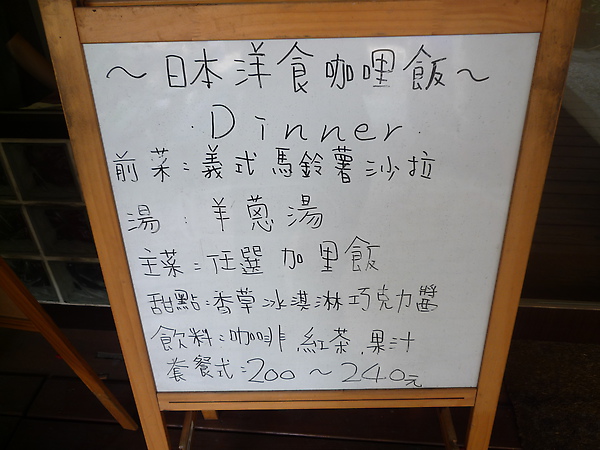 ～日本洋食咖哩飯～
·Dinner·
前菜:義式馬鈴薯沙拉
湯:羊蔥湯
主菜:任選加里飯
甜點:香草冰淇淋巧克力醬
飲料:咖啡.紅茶.果汁
套餐式:200～240元